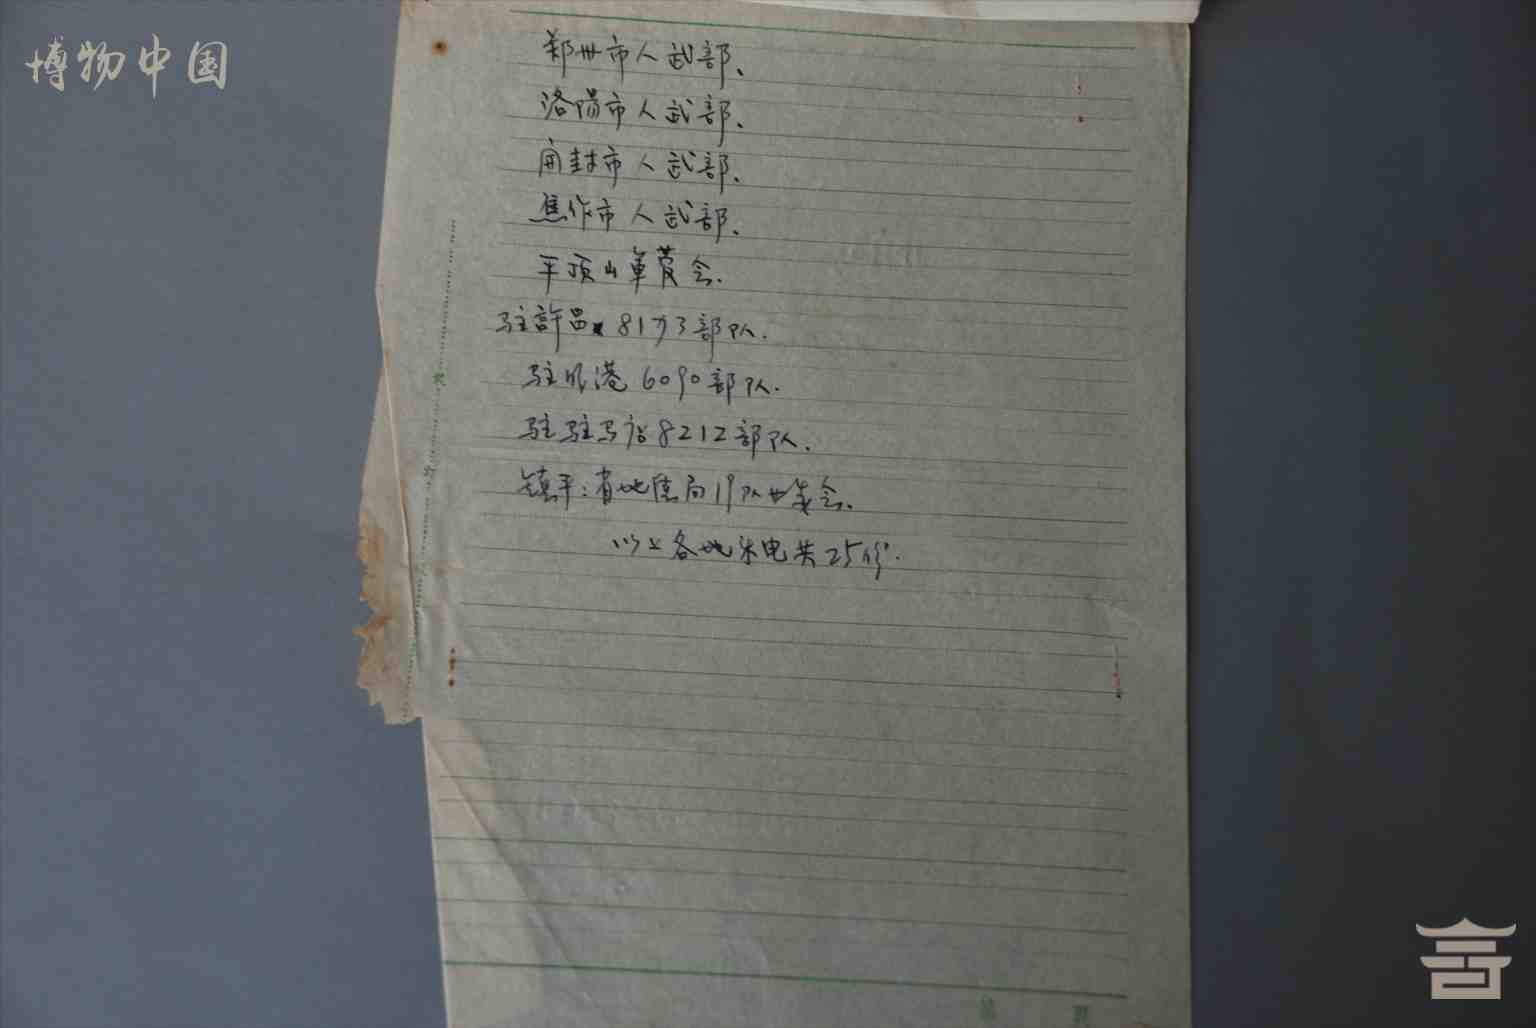 博物中国
郑州市人武部、
洛阳市人武部、
开封市人武部、
焦作市人武部、
平顶山革委会.
驻許昌8173部队.
驻明港6090部队.
驻驻马店8212部队.
镇平:省地质局19队革委会.
以上各地来电共25份.